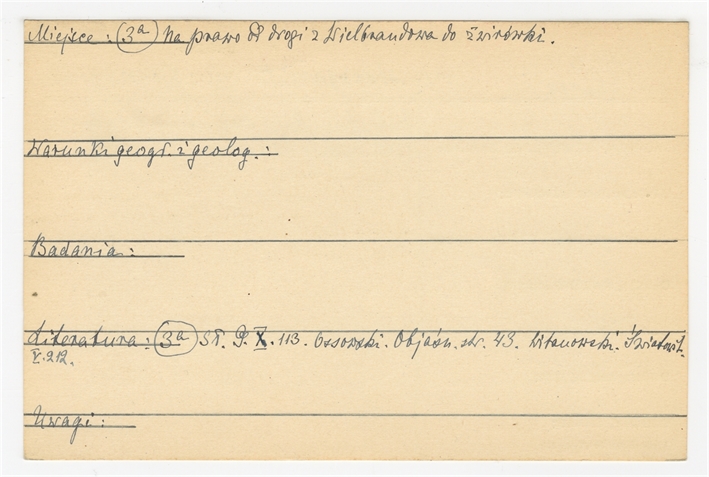 Miejsce: (3a) Na prawo od drogi z Wielbrandowa do żwirówki.
Warunki geogr. i geolog.:
Badania:
Literatura: (3a) Sł. G. X. 113. Ossowski. Objaśn. str. 43. Witanowski. Światowit.
V. 212.
Uwagi: